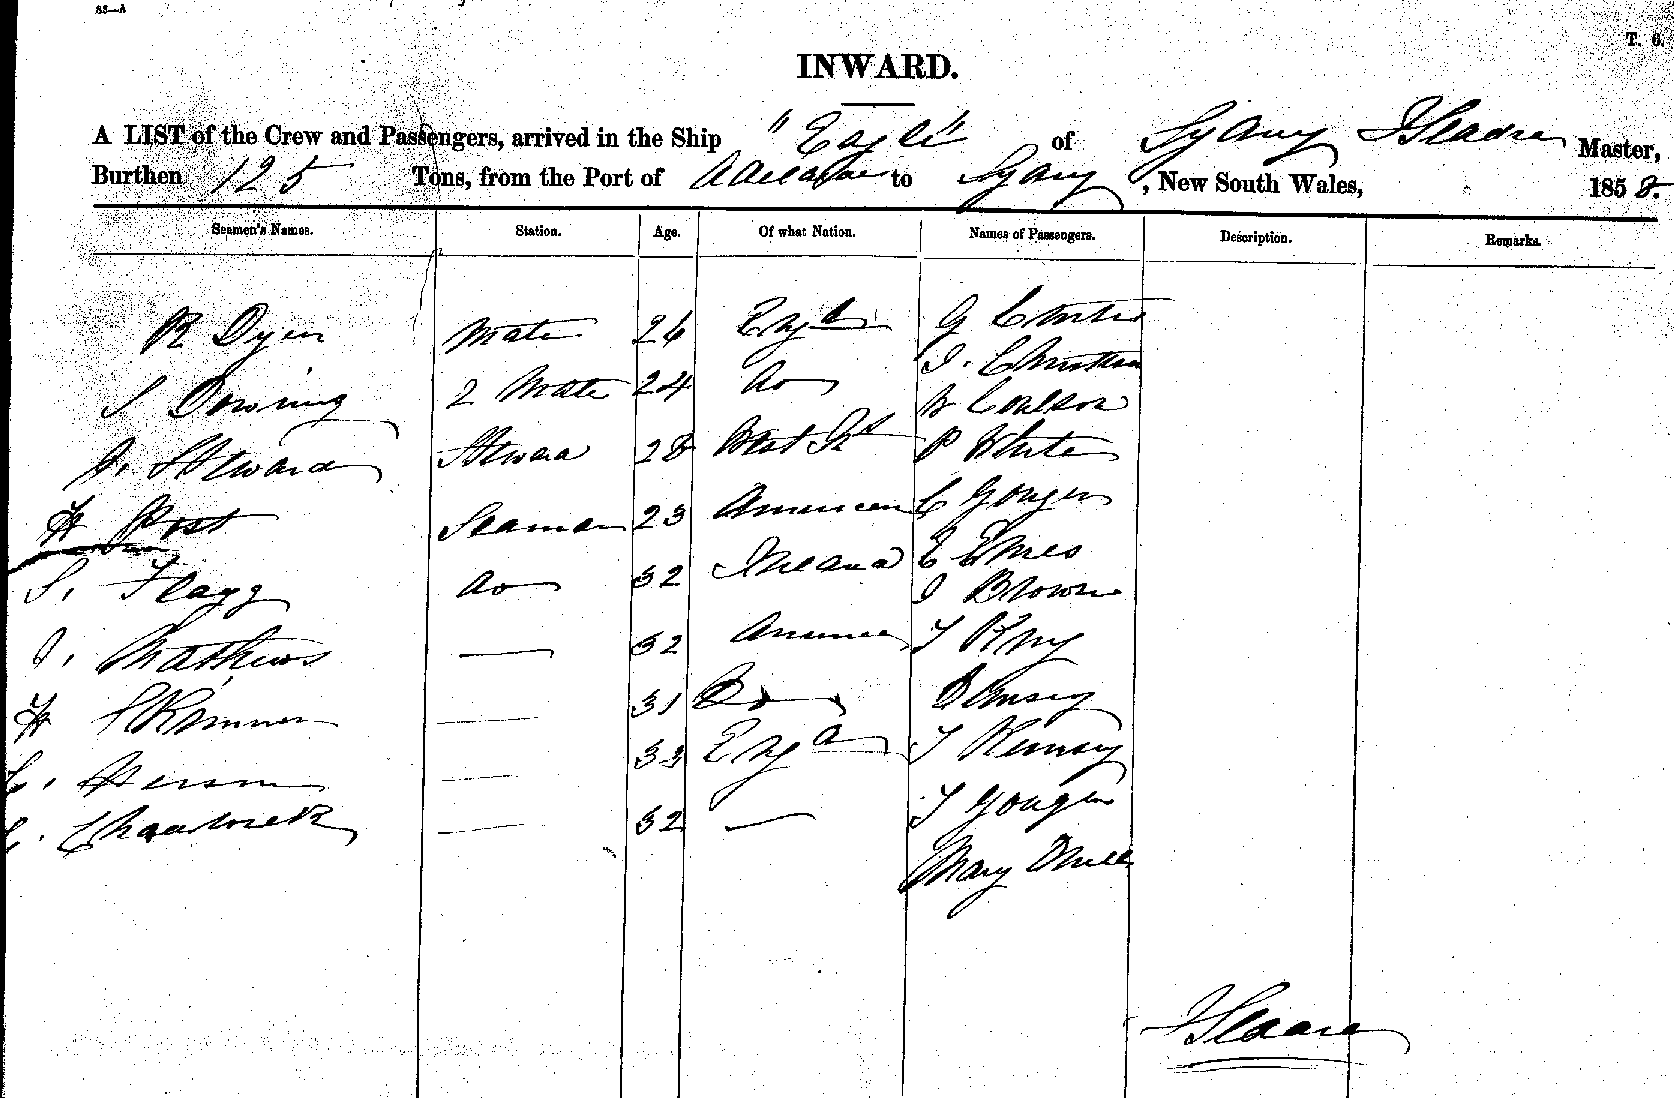 83—A
T. 6.
INWARD.
A LIST of the Crew and Passengers, arrived in the Ship "Eagle" of Sydney Master,
Burthen 125 Tons, from the Port of Adelaide to Sydney, New South Wales, 1858.
Seamen's Names. Station. Age. Of what Nation. Names of Passengers. Description. Remarks.
R Dyer Mate 26 Engld G
J. Christian
S Downing 2 Mate 24 do
W Coulson
J. Steward Steward 28 West Is P White
H Post Seaman 23 American C Gouger
E Elmes
S. Flagg do 32 Ireland J Brown
J. Mathews — 32 America T King
H Skinner — 31 Do
C. — 33 Engd T Kemsey
C. Chadwick — 32 — T Gouger
Mary